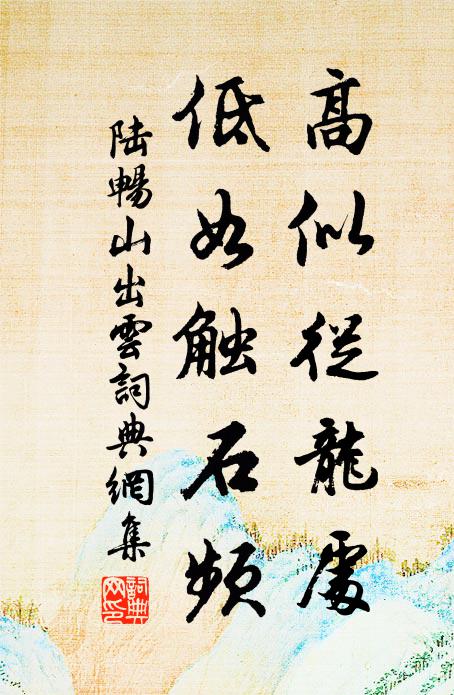 高似從龍處
低如触石頻
陸暢山出雲詞典網集
詞典